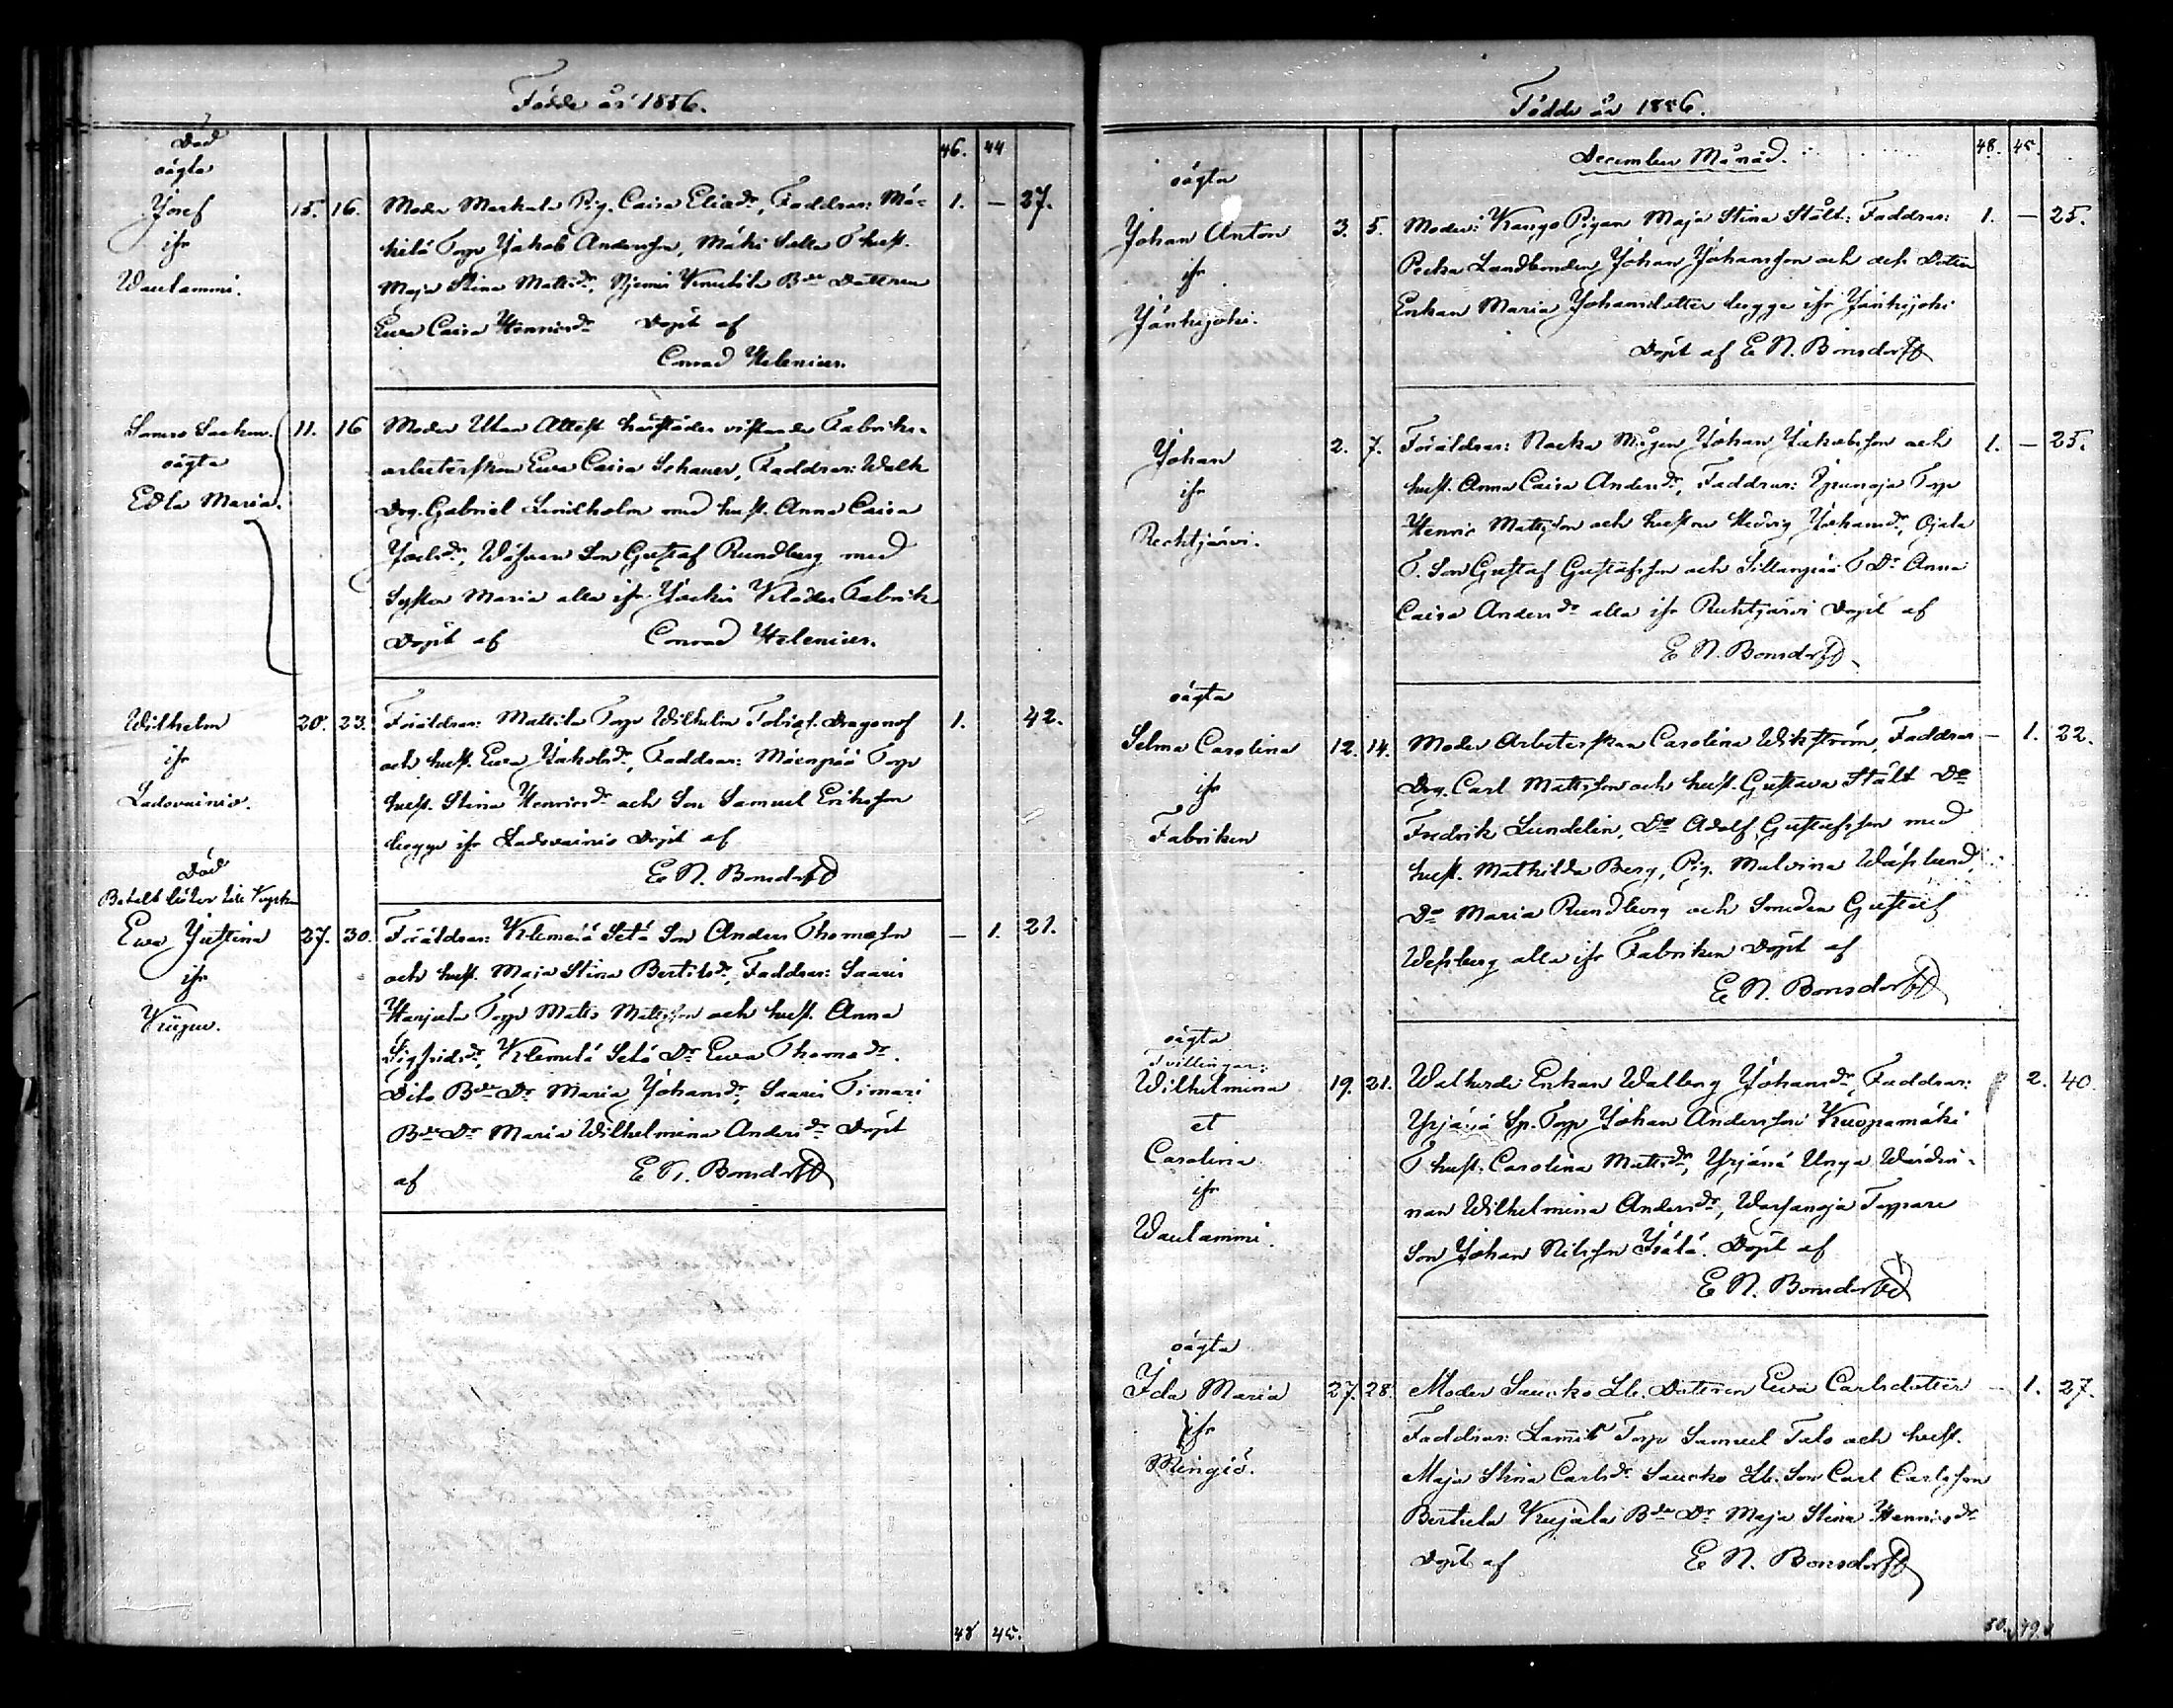 Födde år 1856.
46. 44
Död
oägta
Josef
ifr
Waulammi.
15. 16.
Moder Markula Pig. Caisa Eliædr, Faddrar: Mä-
kilä Torp Jakob Andersson, Mäki Salla T hust.
Maja Stina Mattsdr, Njemis Knuutila Bde Dottren
Ewa Caisa Henricsdr Döpt af
Conrad Helenius.
1. — 27.
Somero Socken.
oägta
Edla Maria.
11. 16
Moder Utan Attest härstädes vistande Fabriks-
arbeterskan Ewa Caisa Schauer, Faddrar: Walk
Drg. Gabriel Lindholm med hust. Anna Caisa
Joelsdr, Wäfvare Son Gustaf Rundberg med
Syster Maria alla ifr Jockis Klädes Fabrik
Döpt af Conrad Helenius.
Wilhelm
ifr
Ladovainio.
20. 23.
Föräldrar: Mattila Torp Wilhelm Tobiæs. Dragonof
och hust. Ewa Jakobsdr, Faddrar: Mäenpää Torp
hust. Stina Henricsdr och Son Samuel Eriksson
begge ifr Ladovainio Döpt af
E N. Bonsdorff
1. 42.
Död
Betalt böter till Kyrkan
Ewa Justina
ifr
Kujne.
27. 30.
Föräldrar: Klemelä Setä Son Anders Thomæson
och hust. Maja Stina Bertilsdr, Faddrar: Saaris
Harjula Torp Matts Mattsson och hust. Anna
Sigfridsdr, Klemelä Setä Dr Ewa Thomædr.
Dito Bde Dr Maria Johansdr, Saaris Timari
Bde Dr Maria Wilhelmina Andersdr Döpt
af E N. Bonsdorff
— 1. 21.
48 45.
Födde år 1856.
December Månad.
48. 45.
oägta
Johan Anton
ifr
Jänhijoki.
3. 5.
Moder: Kango Pigan Maja Stina Stålt: Faddrar:
Pecka Landbonden Johan Johansson och dess Dotter
Enkan Maria Johansdotter begge ifr Jänhijoki
Döpt af E N. Bonsdorff
1. — 25.
Johan
ifr
Rechtjärvi.
2. 7.
Föräldrar: Nocka Mågen Johan Jakobsson och
hust. Anna Caisa Andersdr, Faddrar: Torp
Henric Mattsson och hustru Hedvig Johansdr, Ojala
T. Son Gustaf Gustafsson och Sillanpää T Dr Anna
Caisa Andersdr alla ifr Rechtjärvi Döpt af
E N. Bonsdorff
1. — 25.
oägta
Selma Carolina
ifr
Fabriken
12. 14.
Moder Arbeterskan Carolina Wikström, Faddrar
Drg. Carl Mattsson och hust. Gustava Stålt Do
Fredrik Lundelin, Do Adolf Gustafsson med
hust. Mathilda Berg, Pig. Malvina Wäslund
Do Maria Rundberg och Smeden Gustaf
Wessberg alla ifr Fabriken Döpt af
E N. Bonsdorff
— 1. 22.
oägta
Tvillingar:
Wilhelmina
et
Carolina
ifr
Waulammi.
19. 21.
Enkan Walborg Johansdr, Faddrar:
Yrjänä Sp. Torp Johan Andersson Kuopamäki
T hust. Carolina Mattsdr, Yrjänä Unga Wärdin-
nan Wilhelmina Andersdr, Warsanoja Torpare
Son Johan Nilsson Döpt af
E N. Bonsdorff
2. 40.
oägta
Ida Maria
ifr
Mingiö.
27. 28.
Moder Saucko Lb. Dotteren Ewa Carlsdotter
Faddrar: Torp Samuel Talo och hust.
Maja Stina Carlsdr Saucko Lb. Son Carl Carlsson
Bertula Kujala Bde Dr Maja Stina Henricsdr
Döpt af E N. Bonsdorff
— 1. 27.
50. 49.